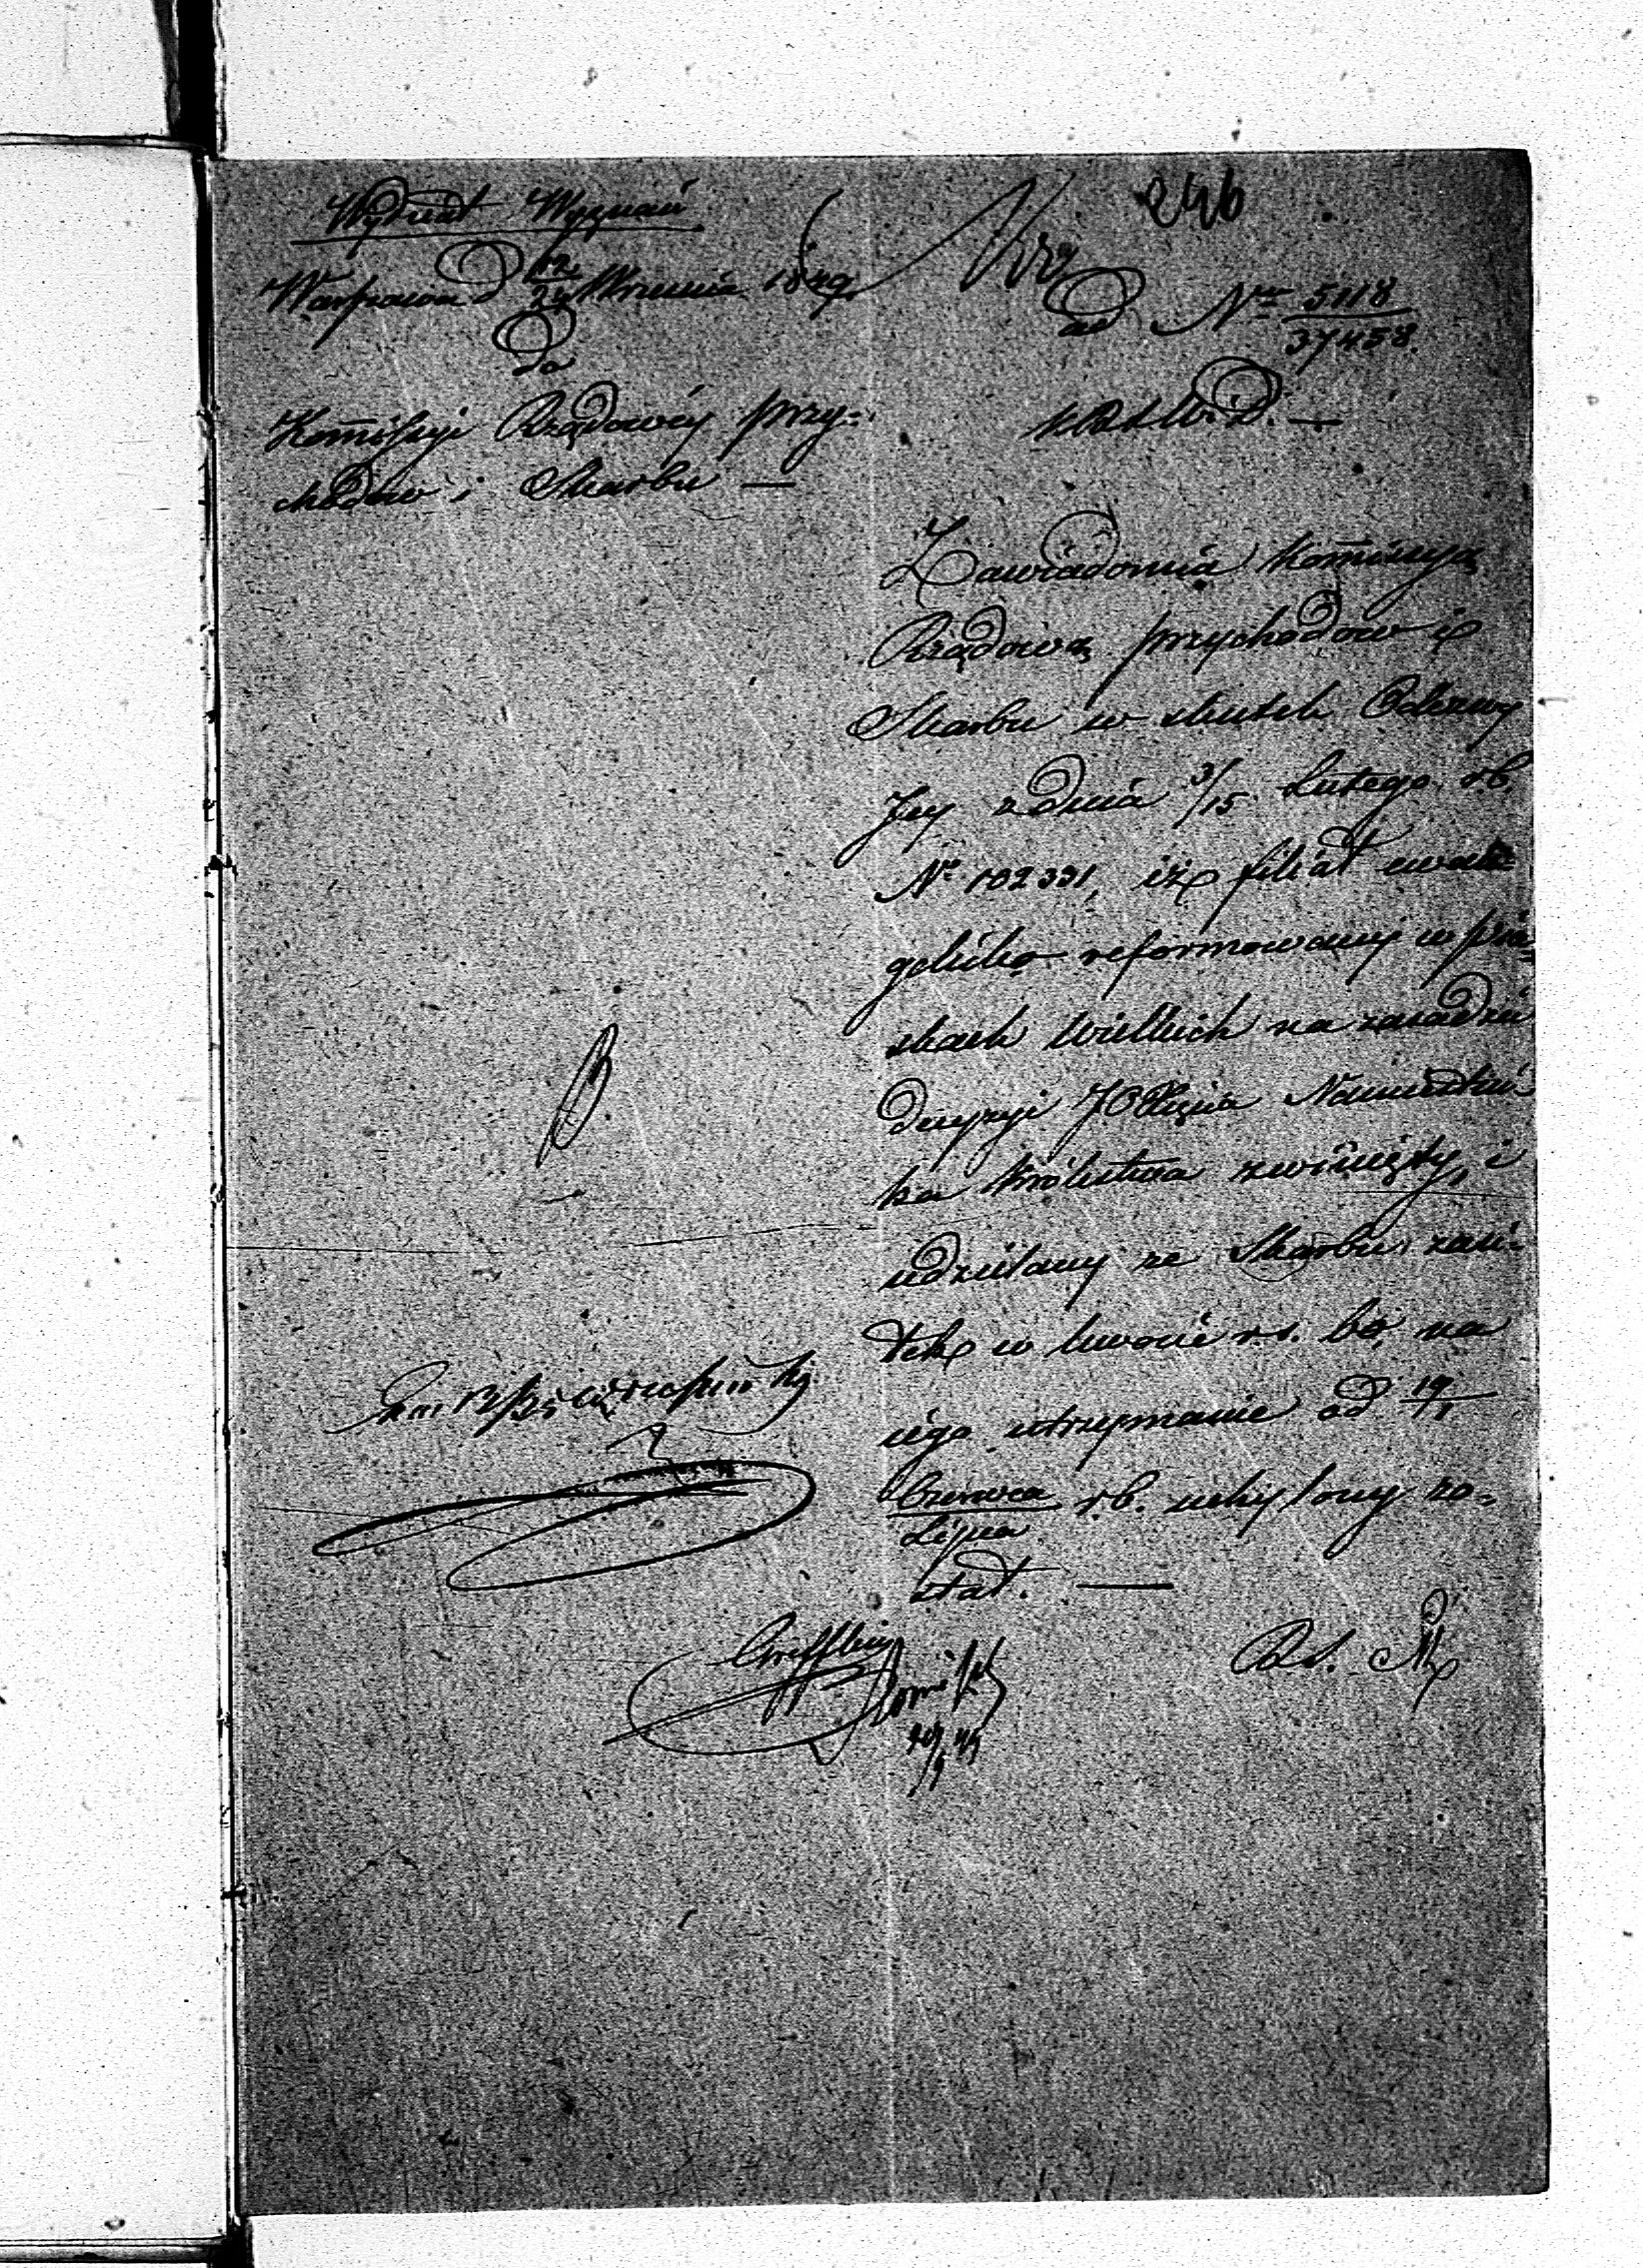 246
Wydział Wyznań
Warszawa d 12/24 Września 1849
Do
Komissyi Rządowéy przy=
chodów i Skarbu —
ad Nro 5118/37458.
KRSW. i D. —
Zawiadomia Komissyą
Rządową przychodów i
Skarbu w skutek Odezwy
Jey z dnia 3/15 Lutego r.b.
No 102331, iż filiał ewan=
gelicko reformowany w Pia=
skach Wielkich na zasadzie
decyzyi JO Xięcia Namiestni=
ka Królestwa zwinięty, i
udzielany ze Skarbu zasi=
łek w kwocie rs. 60 na
iego utrzymanie od 19/1
Czerwca/Lipca r.b. uchylony zo=
stał. —